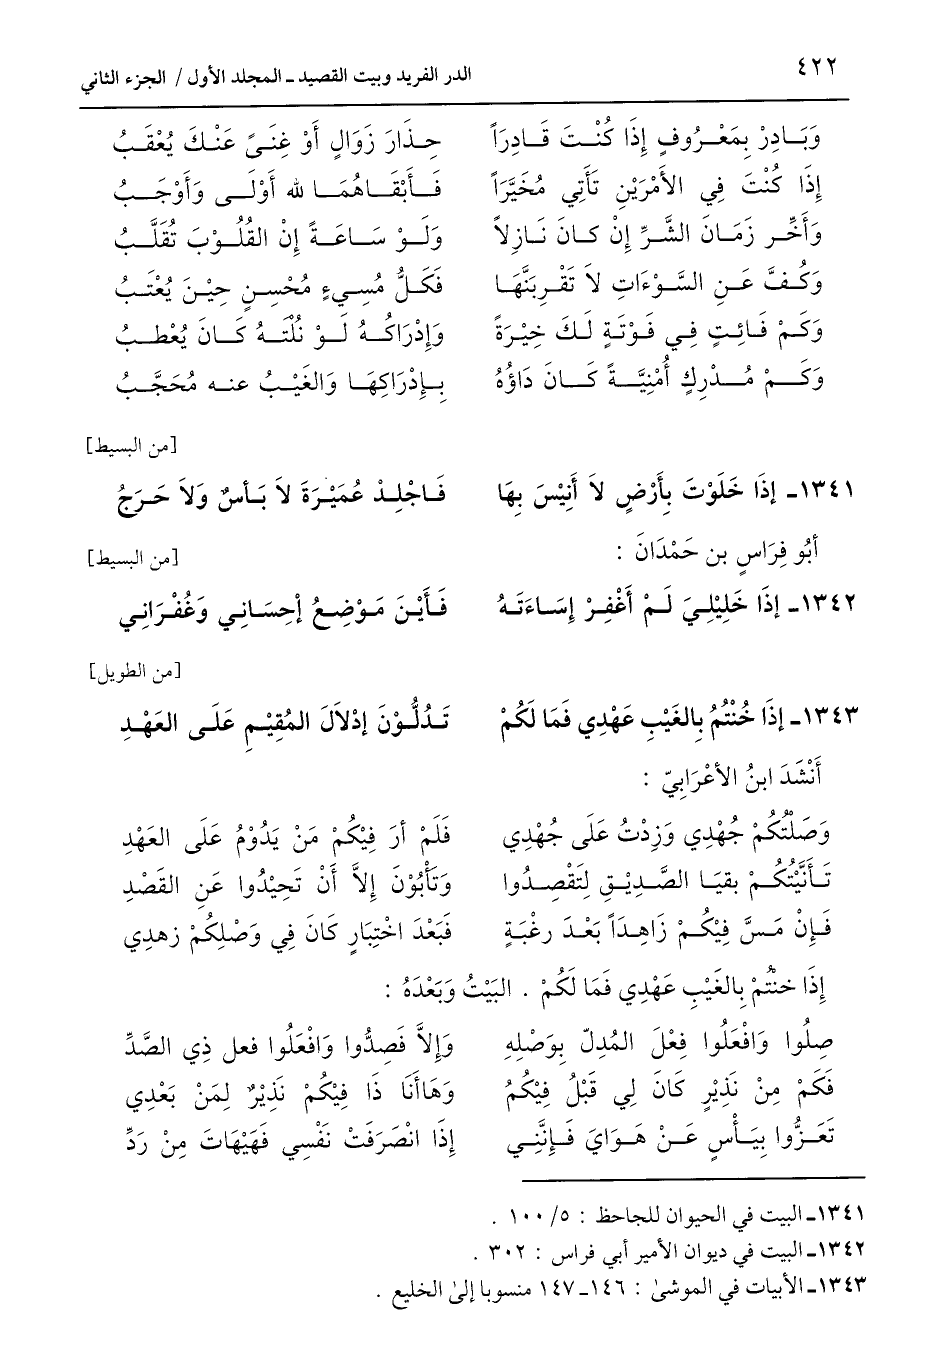 ٤٢٢ الدر الفريد وبيت القصيد ـ المجلد الأول / الجزء الثاني
وَبَـادِرْ بِمَعْـرُوفٍ إِذَا كُنْـتَ قَـادِرَاً حِـذَارَ زَوَالٍ أَوْ غِنَـىً عَنْـكَ يُعْقَـبُ
إِذَا كُنْتَ فِي الأَمْرَيْنِ تَأْتِي مُخَيَّرَاً فَـأَبْقَـاهُمَـا للهِ أَوْلَـى وَأَوْجَـبُ
وَأَخِّـر زَمَـانَ الشَّـرِّ إِنْ كـانَ نَـازِلاً وَلَـوْ سَـاعَـةً إِنْ القُلُـوْبَ تَقَلَّـبُ
وَكُـفَّ عَـنِ السَّـوْءَاتِ لاَ تَقْـرِبَنَّهَـا فَكَلُّ مُسِـيءٍ مُحْسِـنٍ حِيْـنَ يُعْتَـبُ
وَكَـمْ فَـائِـتٍ فِـي فَـوْتَـةٍ لَـكَ خِيْـرَةٌ وَإِدْرَاكُـهُ لَـوْ نُلْتَـهُ كَـانَ يُعْطـبُ
وَكَـمْ مُـدْرِكٍ أُمْنِيَّـةً كَـانَ دَاؤُهُ بِـإِدْرَاكِهَـا وَالغَيْـبُ عنـه مُحَجَّـبُ
[من البسيط]
١٣٤١ـ إِذَا خَلَوْتَ بِأَرْضٍ لاَ أَنِيْسَ بِهَا فَـاجْلِـدْ عُمَيْـرَةَ لاَ بَـأْسٌ وَلاَ حَـرَجُ
أَبُو فِرَاسٍ بن حَمْدَانَ : [من البسيط]
١٣٤٢ـ إِذَا خَلِيْلِيَ لَـمْ أَغْفِـرْ إِسَـاءَتَـهُ فَـأَيْنَ مَـوْضِـعُ إِحسَـانِي وَغُفْـرَانِي
[من الطويل]
١٣٤٣ـ إِذَا خُنْتُمُ بِالغَيْبِ عَهْدِي فَمَا لَكُمْ تَـدُلُّـوْنَ إِدْلاَلَ المُقِيْـمِ عَلَـى العَهْـدِ
أَنْشَدَ ابنُ الأَعْرَابِيّ :
وَصَلْتُكُمْ جُهْدِي وَزِدْتُ عَلَى جُهْدِي فَلَمْ أَرَ فِيْكُمْ مَنْ يَدُوْمُ عَلَى العَهْدِ
تَـأَنَّيْتُكُـمْ بقيَـا الصَّـدِيْـقِ لِتَقْصِـدُوا وَتَأْبُوْنَ إِلاَّ أَنْ تَحِيْدُوا عَنِ القَصْدِ
فَـإِنْ مَـسَّ فِيْكُـمْ زَاهِـدَاً بَعْـدَ رغْبَـةٍ فَبَعْدَ اخْتِبَارٍ كَانَ فِي وَصْلِكُمْ زهدِي
إِذَا خنْتُمْ بِالغَيْبِ عَهْدِي فَمَا لَكُمْ . البَيْتُ وَبَعْدَهُ :
صِلُوا وَافْعَلُوا فِعْلَ المُدِلّ بِوَصْلِهِ وَإِلاَّ فَصِدُّوا وَافْعَلُوا فعل ذِي الصَّدِّ
فَكَمْ مِنْ نَذِيْرٍ كَانَ لِي قَبْلُ فِيْكُمُ وَهَاأَنَا ذَا فِيْكُمْ نَذِيْرٌ لِمَنْ بَعْدِي
تَعَـزُّوا بِيَـأْسٍ عَـنْ هَـوَايَ فَـإِنَّنِـي إِذَا انْصَرَفَتْ نَفْسِي فَهَيْهَاتَ مِنْ رَدِّ
١٣٤١ـ البيت في الحيوان للجاحظ : ٥/ ١٠٠ .
١٣٤٢ـ البيت في ديوان الأمير أبي فراس : ٣٠٢ .
١٣٤٣ـ الأبيات في الموشىٰ : ١٤٦ـ١٤٧ منسوبا إلىٰ الخليع .